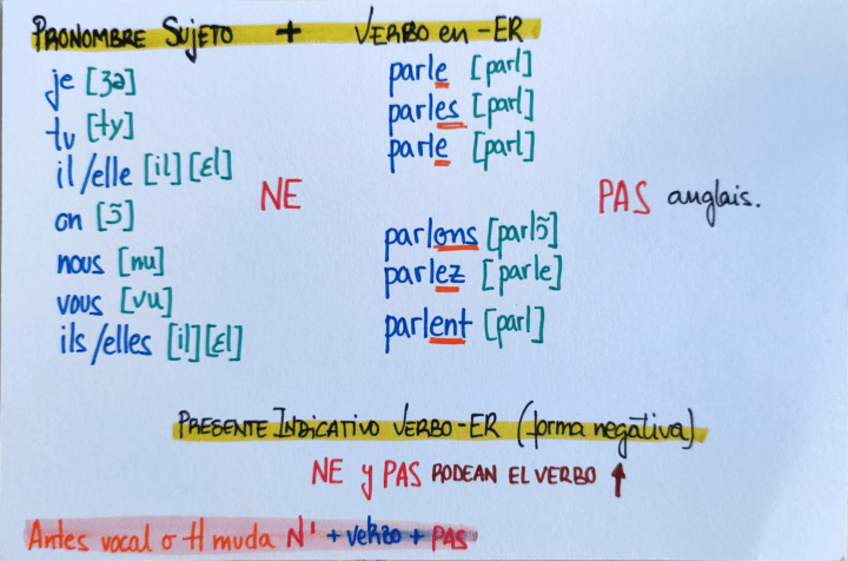 PRONOMBRE SUJETO + VERBO en -ER
je [ʒə] parle [parl]
tu [ty] parles [parl]
il/elle [il][ɛl] parle [parl]
NE PAS anglais.
on [ɔ̃]
nous [nu] parlons [parlɔ̃]
vous [vu] parlez [parle]
ils/elles [il][ɛl] parlent [parl]
PRESENTE INDICATIVO VERBO-ER (forma negativa)
NE y PAS RODEAN EL VERBO ↑
Antes vocal o H muda N' + verbo + PAS